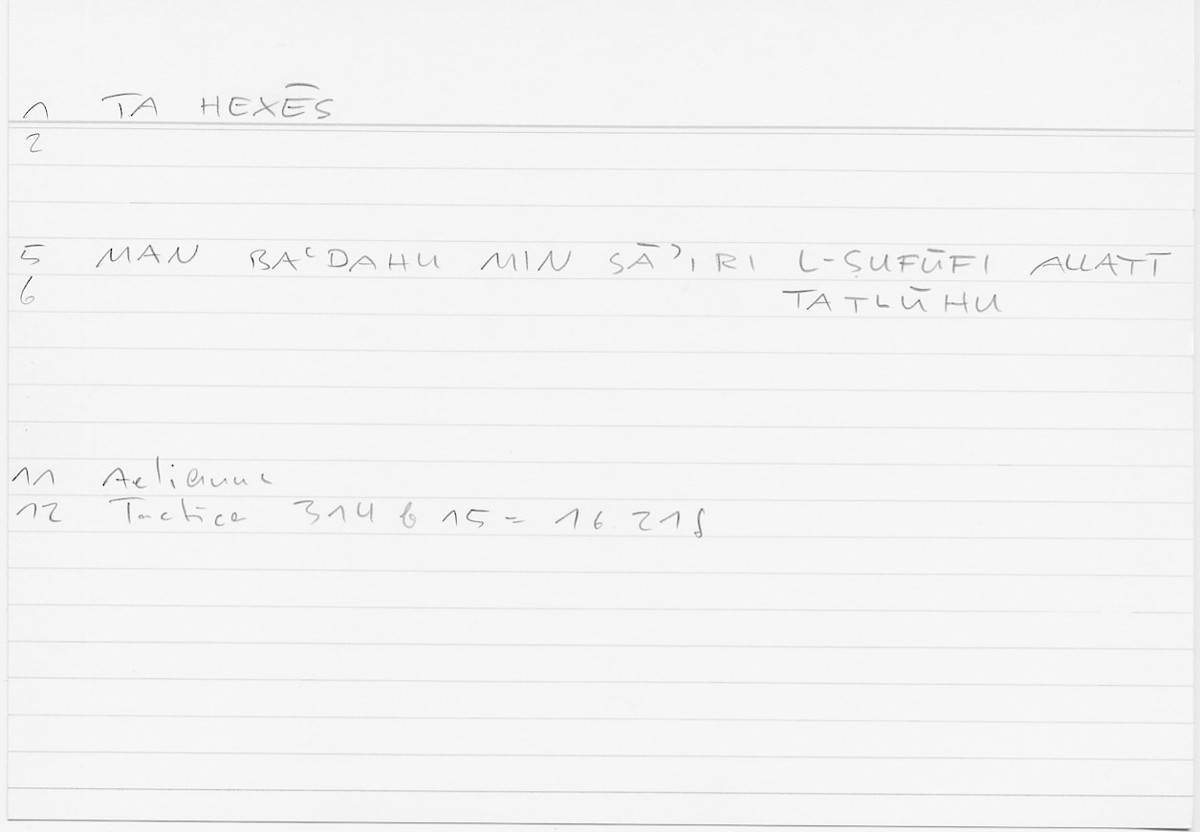 1 TA HEXĒS
2
5 MAN BAʿDAHU MIN SĀʾIRI L-ṢUFŪFI ALLATĪ
6 TATLŪHU
11 Aelianus
12 Tactica 314 b 15 = 16 21f